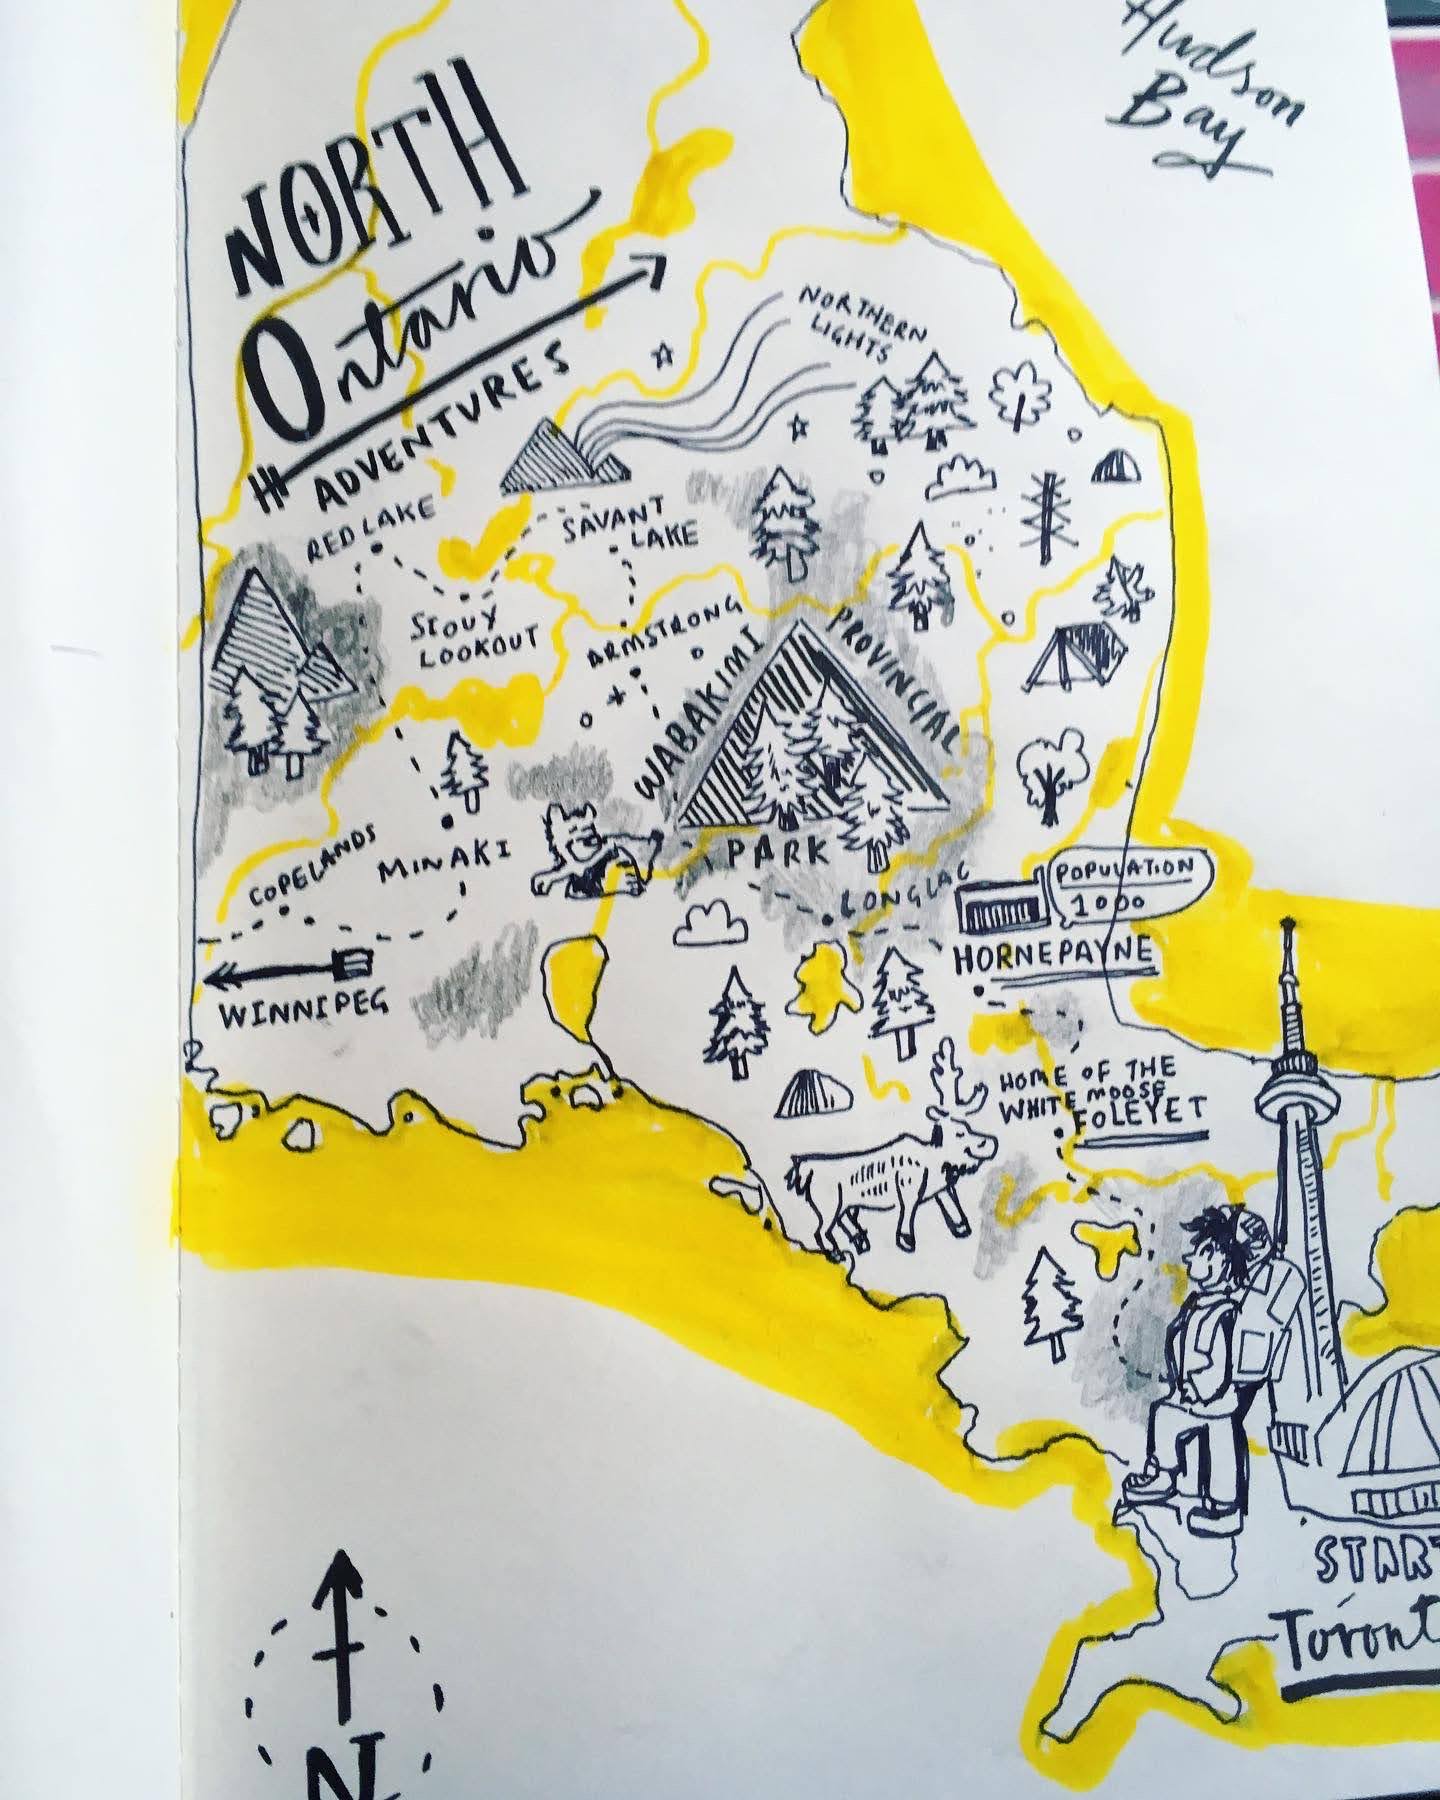 Hudson
Bay
NORTH
Ontario
ADVENTURES
NORTHERN
LIGHTS
RED LAKE
SAVANT
LAKE
SIOUX
LOOKOUT
ARMSTRONG
WABAKIMI
PROVINCIAL
PARK
COPELANDS
MINAKI
LONGLAC
POPULATION
1000
HORNEPAYNE
WINNIPEG
HOME OF THE
WHITE MOOSE
FOLEYET
START
Toront
N